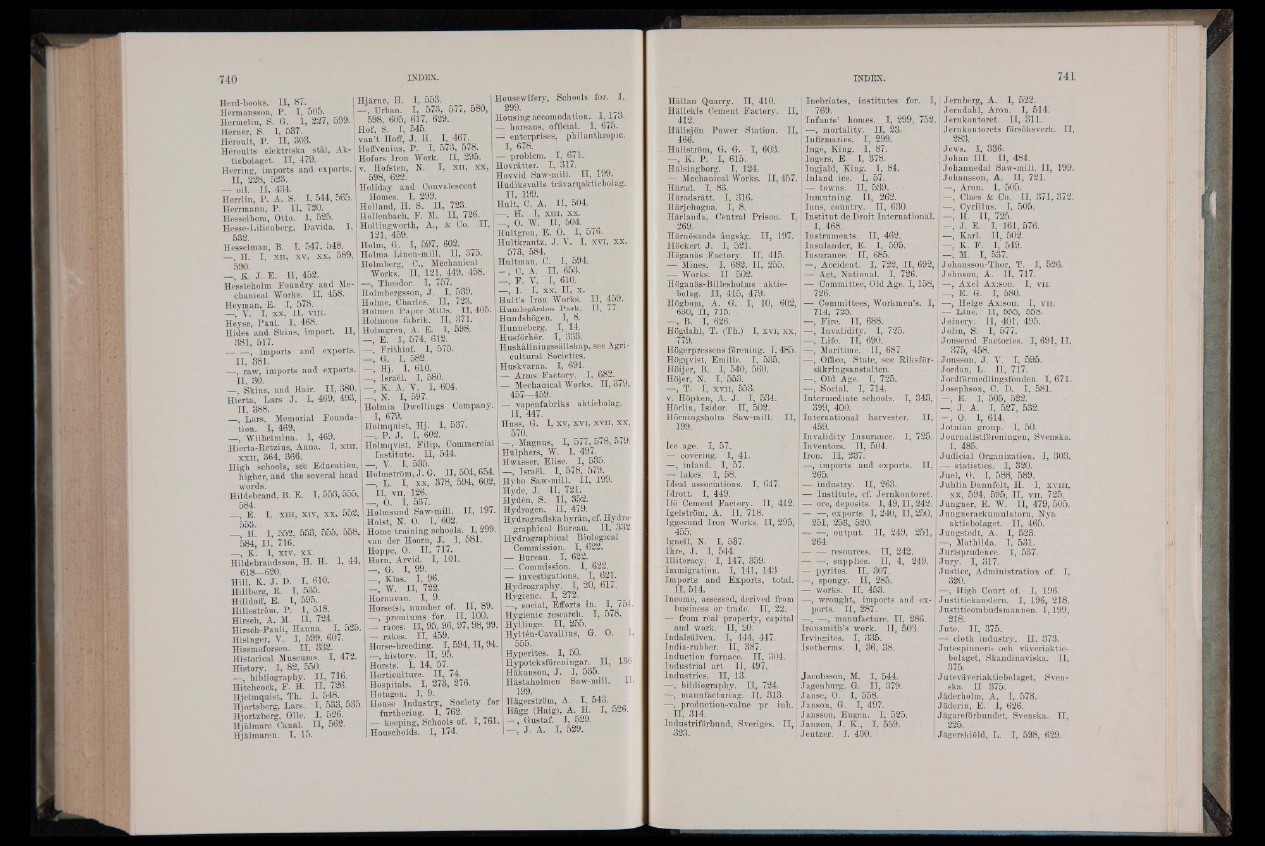 740
INDEX.
Herd-books. II, 87.
Hermansson, P. I, 505.
Hermelin, S. G. I, 227, 599.
Herner, S. I, 537.
Héroult, P. II, 303.
Héroults elektriska stål, Ak-
tiebolaget. II, 479.
Herring, imports and exports.
II, 228, 523.
— oil. II, 434.
Herrlin, P. A. S. I, 544, 565.
Herrmann, P. II, 720.
Hesselbom, Otto. I, 525.
Hesse-Lilienberg, Davida. I,
532.
Hesselman, B. I, 547, 548.
—, H. I, XII, XV, XX, 589,
590.
—, K. J. E. II, 452.
Hessleholm Foundry and Me-
chanical Works. II, 458.
Heyman, E. I, 578.
—, V. I, XX, II, VIII.
Heyse, Paul. I, 468.
Hides and Skins, import. II,
381, 517.
— —, imports and exports.
II, 381.
—, raw, imports and exports.
II, 30.
—, Skins, and Hair. II, 380.
Hierta, Lars J. I, 469, 493,
II, 388.
—, Lars, Memorial Founda-
tion. I, 469.
—, Wilhelmina. I, 469.
Hierta-Retzius, Anna. I, XIII,
XXII, 364, 366.
High schools, see Education,
higher, and the several head
words.
Hildebrand, B. E. I, 553, 555,
584.
—, E. I, XIII, XIV, XX, 552,
553.
—, H. I, 552, 553, 555, 558,
584, II, 716.
—, K. I, XIV, XX.
Hildebrandsson, H. H. I, 44,
618—620.
Hill, K. J. D. I, 610.
Hillberg, E. I, 535.
Hilldoff, E. I, 595.
Hilleström, P. I, 518.
Hirsch, A. M. II, 724.
Hirsch-Pauli, Hanna. I, 525.
Hisinger, V. I, 599, 607.
Hissmoforsen. II, 332.
Historical Museums. I, 472.
History. I, 82, 550.
—, bibliography. II, 716.
Hitchcock, F. H. II, 726.
Hjelmquist, Th. I, 548.
Hjortsberg, Lars. I, 533, 535.
Hjortzberg, Olle. I, 526.
Hjälmare Canal. II, 562.
Hjälmaren. I, 15.
Hjärne, H. I, 553.
—, Urban. I, 573, 577, 580,
598, 605, 617, 629.
Hof, S. I, 545.
van't Hoff, J. H. I, 467.
Hoffvenius, P. I, 573, 578.
Hofors Iron Work. II, 295.
v. Hofsten, N. I, XII, XX,
598, 622.
Holiday and Convalescent
Homes. I, 299.
Holland, H. S. II, 723.
Hollenbach, F. M. II, 726.
Hollingworth, A., & Co. II,
121, 459.
Holm, G. I, 597, 602.
Holma Linen-mill. II, 375.
Holmberg, C., Mechanical
Works. II, 121, 449, 458.
—, Theodor. I, 757.
Holmbergsson, J. I, 539.
Holme, Charles. II, 723.
Holmen Paper Mills. II, 405.
Holmens fabrik. II, 371.
Holmgren, A. E. I, 598.
—, E. I, 574, 612.
—, Frithiof. I, 575.
—, G. I, 582.
—, Hj. I, 610.
—, Israël. I, 580.
—, K. A. V. I, 604.
—, N. I, 597.
Holmia Dwellings Company.
I, 679.
Holmquist, Hj. I, 537.
—, P. J. I, 602.
Holmqvist, Filip, Commercial
Institute. II, 544.
—, V. I, 535.
Holmström, J. G. II, 504, 654.
—, L. I, XX, 378, 594, 602,
II, VII, 126.
—, O. I, 537.
Holmsund Saw-mill. II, 197.
Holst, N. O. I, 602.
Home training schools. I, 299.
van der Hoorn, J. I, 581.
Hoppe, O. II, 717.
Horn, Arvid. I, 101.
—, G. I, 99.
—, Klas. I, 96.
—, W. II, 722.
Hornavan. I, 9.
Horse(s), number of. II, 89.
—, premiums for. II, 100.
— races. II, 95, 96, 97, 98, 99.
— rakes. II, 459.
Horse-breeding. I, 594, II, 94.
—, history. II, 95.
Horsts. I, 14, 57.
Horticulture. II, 74.
Hospitals. I, 273, 276.
Hotagen. I, 9.
House Industry, Society for
furthering. I, 762.
— keeping, Schools of. I, 761.
Households. I, 174.
Housewifery, Schools for. I,
299.
Housing accomodation. I, 173.
— bureaus, official. I, 675.
— enterprises, philanthropic.
I, 678.
— problem. I, 671.
Hovrätter. I, 317.
Hovvid Saw-mill. II, 199.
Hudiksvalls trävaruaktiebolag.
II, 199.
Hult, C. A. II, 504.
—, H. I, XIII, XX.
—, O. W. II, 504.
Hultgren, E. O. I, 576.
Hultkrantz, J. V. I, XVI, XX,
573, 584.
Hultman, C. I, 594.
—, C. A. II, 653.
—, F. V. I, 610.
—, I. I, XX, II, X.
Hult's Iron Works. II, 459.
Humlegården Park. II, 77.
Hundshögen. I, 8.
Hunneberg. I, 14.
Husförhör. I, 353.
Hushållningssällskap, see Agri-
cultural Societies.
Huskvarna. I, 691.
— Arms Factory. I, 682.
— Mechanical Works. II, 379,
457—459.
— vapenfabriks aktiebolag.
II, 447.
Huss, G. I, XV, XVI, XVII, XX,
570.
—, Magnus, I, 577, 578, 579.
Hulphers, W. I, 497.
Hwasser, Elise. I, 535.
—, Israël. I, 578, 579.
Hybo Saw-mill. II, 199.
Hyde, J. II, 721.
Hydén, S. II, 352.
Hydrogen. II, 479.
Hydrografiska byrån, cf. Hydro-
graphical Bureau. II, 332.
Hydrographical Biological
Commission. I, 622.
— Bureau. I, 622.
— Commission. I, 622.
— investigations. I, 621.
Hydrography. I, 20, 617.
Hygiene. I, 272.
—, social, Efforts in. I, 754.
Hygienic research. I, 578.
Hyllinge. II, 255.
Hyltén-Cavallius, G. O. I,
555.
Hyperites. I, 50.
Hypoteksföreningar. II, 136
Håkanson, J. I, 535.
Håstaholmen Saw-mill. II,
199.
Hägerström, A. I, 543.
Hägg (Haig), A. H. I, 526.
—, Gustaf. I, 529.
—, J. A. I, 529.
INDEX.
741
Hällan Quarry. II, 410.
Hällekis Cement Factory. II,
412.
Hällsjön Power Station. II,
466.
Hällström, G. G. I, 603.
—, K. P. I, 615.
Hälsingborg. I, 124.
— Mechanical Works. II, 457.
Härad. I, 83.
Häradsrätt. I, 316.
Härjehogna. I, 8.
Härlanda, Central Prison. I,
269.
Härnösands ångsåg. II, 197.
Höckert J. I, 521.
Höganäs Factory. II, 415.
— Mines. I, 682, II, 255.
— Works. II 502.
Höganäs-Billesholms aktie-
bolag. II, 415, 479.
Högbom, A. G. I, 10, 602,
630, II, 715.
—, B. I, 626.
Högdahl, T. (Th.) I, XVI, XX,
779.
Högerpressens förening. I, 485.
Högqvist, Emilie. I, 535.
Höijer, B. I, 540, 560.
Höjer, N. I, 553.
—, T. I, XVII, 553.
v. Höpken, A. J. I, 534.
Hörlin, Isidor. II, 502.
Hörningsholm Saw-mill. II,
199.
Ice age. I, 57.
— covering. I, 41.
—, inland. I, 57.
— lakes. I, 58.
Ideal associations. I, 647.
Idrott. I, 449.
Ifö Cement Factory. II, 412.
Igelström, A. II, 718.
Iggesund Iron Works. II, 295,
455.
Ignell, N. I, 537.
Ihre, J. I, 544.
Illiteracy. I, 147, 359.
Immigration. I, 141, 143.
Imports and Exports, total.
II, 514.
Income, assessed, derived from
business or trade. II, 22.
— from real property, capital
and work. II, 20.
Indalsälven. I, 444, 447.
India-rubber. II, 387.
Induction furnace. II, 304.
Industrial art. II, 497.
Industries. II, 13.
—, bibliography. II, 724.
—, manufacturing. II, 313.
—, production-value pr inh.
II, 314.
Industriförbund, Sveriges. II,
323.
Inebriates, institutes for. I,
769.
Infants' homes. I, 299, 752.
—, mortality. II, 23.
Infirmaries. I, 299.
Inge, King. I, 87.
Ingers, E. I, 378.
Ingjald, King. I, 84.
Inland ice. I, 57.
— towns. II, 539.
Inmutning. II, 262.
Inns, country. II, 630
Institut de Droit International.
I, 468.
Instruments. II, 462.
Insulander, E. I, 595.
Insurance. II, 685.
—, Accident. I, 722, II, 692,
— Act, National. I, 726.
— Committee, Old Age. I, 158,
726.
— Committees, Workmen's. I,
714, 725.
—, Fire. II, 688.
—, Invalidity. I, 725.
—, Life. II, 690.
—, Maritime. II, 687.
— Office, State, see Riksför-
säkringsanstalten.
—, Old Age. I, 725.
—, Social. I, 714.
Intermediate schools. I, 343,
399, 400.
International harvester. II,
459.
Invalidity Insurance. I, 725.
Inventors. II, 504.
Iron. II, 237.
—, imports and exports. II,
265.
— industry. II, 263.
— Institute, cf. Jernkontoret.
— ore, deposits. I, 49, II, 242.
— —, exports. I, 240, II, 250,
251, 253, 520.
— —, output. II, 249, 251,
264.
— — resources. II, 242.
— —, supplies. II, 4, 249.
— pyrites. II, 307.
—, spongy. II, 285.
— works. II, 453.
—, wrought, imports and ex-
ports. II, 287.
—, —, manufacture. II, 286.
Ironsmith's work. II, 503.
Irvingites. I, 335.
Isotherms. I, 36, 38.
Jacobsson, M. I, 544.
Jagenburg. G. II, 379.
Janse, O. I, 558.
Janson, G. I, 497.
Jansson, Eugen. I, 525.
Janzon, J. K., I, 559.
Jentzer. I. 430.
Jernberg, A. I, 522.
Jerndahl, Aron. I, 514.
Jernkontoret. II, 311.
Jernkontorets försöksverk. II,
283.
Jews. I, 336.
Johan III. II, 484.
Johannedal Saw-mill. II, 199.
Johansson, A. II, 721.
—, Aron. I, 505.
—, Claes & Co. II, 371, 372.
—, Cyrillus. I, 505.
—, H. II, 725.
—, J. E. I, 161, 576.
—, Karl. II, 502.
—, K. F. I, 549.
—, M. I, 537.
Johansson-Thor, T. I, 526.
Johnson, A. II, 717.
—, Axel Ax:son. I, VII.
—, E. G. I, 580.
—, Helge Ax:son. I, VII.
— Line. II, 555, 558.
Joinery. II, 401, 495.
Jolin, S. I, 577.
Jonsered Factories. I, 691, II,
375, 458.
Jonsson, J. V. I, 595.
Jordan, L. II, 717.
Jordförmedlingsfonden. I, 671.
Josephson, C. D. I, 581.
—, E. I, 505, 522.
—, J. A. I, 527, 532.
—, O. I, 614.
Jotnian group. I, 50.
Journalistföreningen, Svenska.
I, 485.
Judicial Organization. I, 303.
— statistics. I, 320.
Juel, O. I, 588, 589.
Juhlin Dannfelt, H. I, XVIII,
XX, 594, 595, II, VII, 725.
Jungner, E. W. II, 479, 505.
Jungnerackumulatorn, Nya
aktiebolaget. II, 465.
Jungstedt, A. I, 523.
—, Mathilda. I, 531.
Jurisprudence. I, 537.
Jury. I, 317.
Justice, Administration of. I,
320.
—, High Court of. I, 196.
Justitiekanslern. I, 196, 218.
Justitieombudsmannen. I, 199,
218.
Jute. II, 375.
— cloth industry. II, 373.
Jutespinneri- och väveriaktie-
bolaget, Skandinaviska. II,
375.
Juteväveriaktiebolaget, Sven-
ska. II 375.
Jäderholm, A. I, 578.
Jäderin, E. I, 626.
Jägareförbundet, Svenska. II,
225.
Jägerskiöld, L. I, 598, 629.